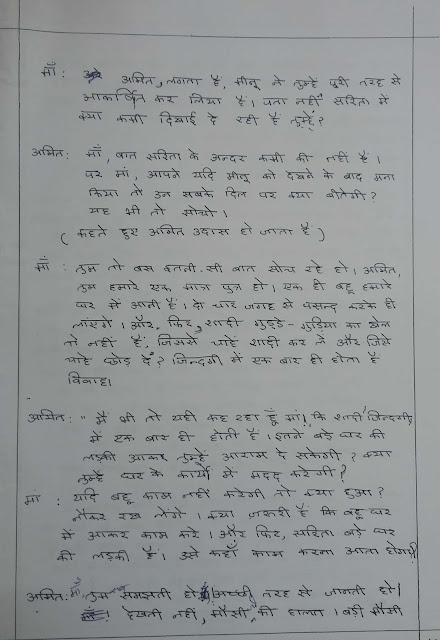 माँ : अमित, लगता है, मीनू ने तुम्हें पूरी तरह से
आकर्षित कर लिया है। पता नहीं सरिता में
क्या कमी दिखाई दे रही है तुम्हें?
अमित: माँ, बात सरिता के अन्दर कमी की नहीं है।
पर मां, आपने यदि मीनू को देखने के बाद मना
किया तो उन सबके दिल पर क्या बीतेगी?
यह भी तो सोचो।
( कहते हुए अमित उदास हो जाता है )
माँ : तुम तो बस इतनी सी बात सोच रहे हो। अमित,
तुम हमारे एक मात्र पुत्र हो। एक ही बहू हमारे
घर में आनी है। दो चार जगह से पसन्द करके ही
लाएंगे। और, फिर, शादी गुड्डे-गुड़िया का खेल
तो नहीं है; जिससे चाहे शादी कर लें और जिसे
चाहे छोड़ दें? जिन्दगी में एक बार ही होता है
विवाह।
अमित: "मैं भी तो यही कह रहा हूँ मां! कि शादी जिन्दगी
में एक बार ही होती है। इतने बड़े घर की
लड़की आकर तुम्हें आराम दे सकेगी? क्या
तुम्हें घर के कार्यों में मदद करेगी?
मां : यदि बहू काम नहीं करेगी तो क्या हुआ?
नौकर रख लेंगे। क्या ज़रूरी है कि बहू घर
में आकर काम करे। और फिर, सरिता बड़े घर
की लड़की है। उसे कहाँ काम करना आता होगा?
अमित: माँ, तुम समझती हो अच्छी तरह से जानती हो।
देखती नहीं, मौसी की हालत। बड़ी मौसी